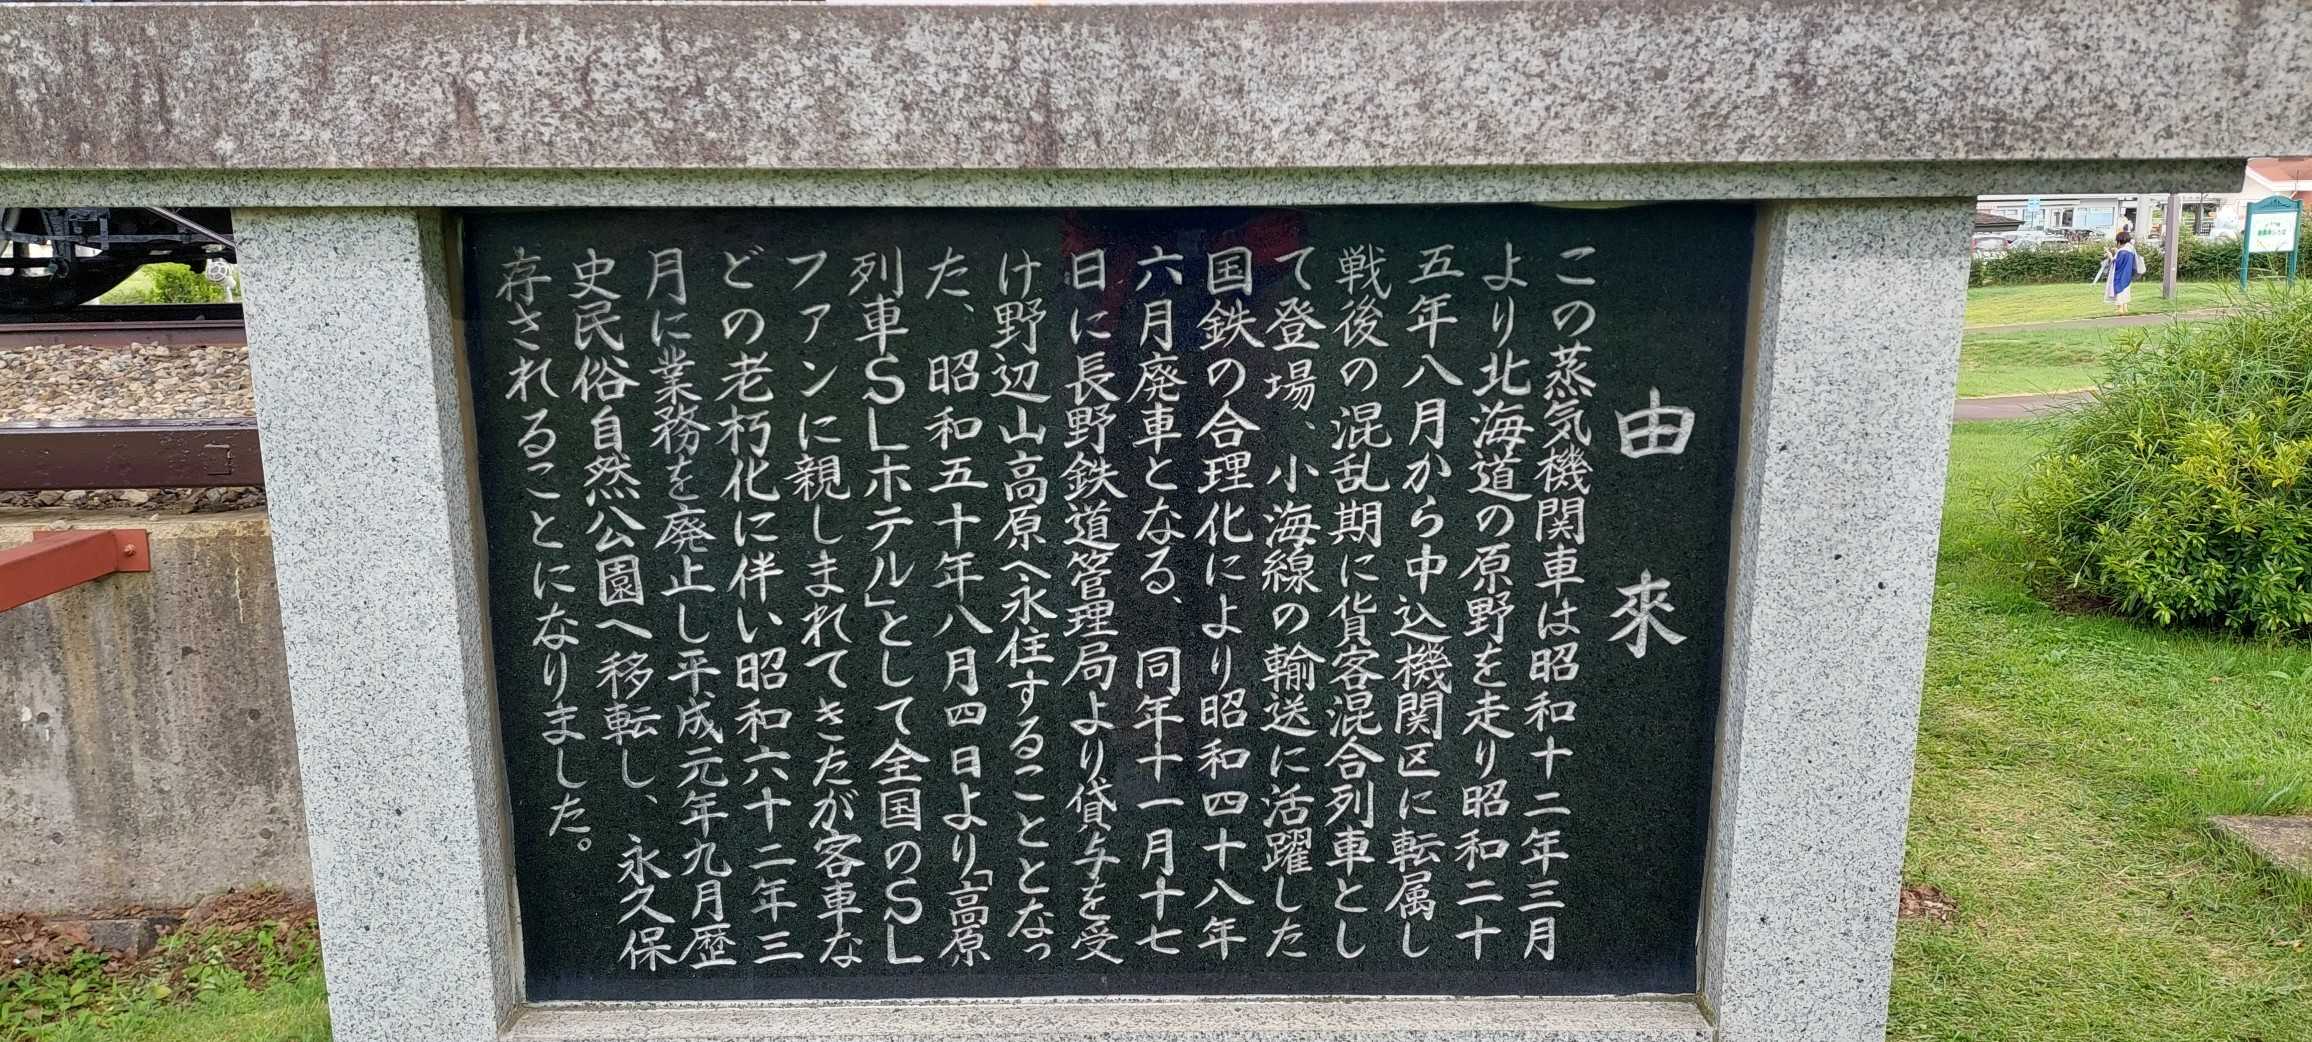 由來
この蒸気機関車は昭和十二年三月
より北海道の原野を走り昭和二十
五年八月から中込機関区に転属し
戦後の混乱期に貨客混合列車とし
て登場、小海線の輸送に活躍した
国鉄の合理化により昭和四十八年
六月廃車となる、同年十一月十七
日に長野鉄道管理局より貸与を受
け野辺山高原へ永住することとなっ
た、昭和五十年八月四日より「高原
列車SLホテル」として全国のSL
ファンに親しまれてきたが客車な
どの老朽化に伴い昭和六十二年三
月に業務を廃止し平成元年九月歴
史民俗自然公園へ移転し、永久保
存されることになりました。